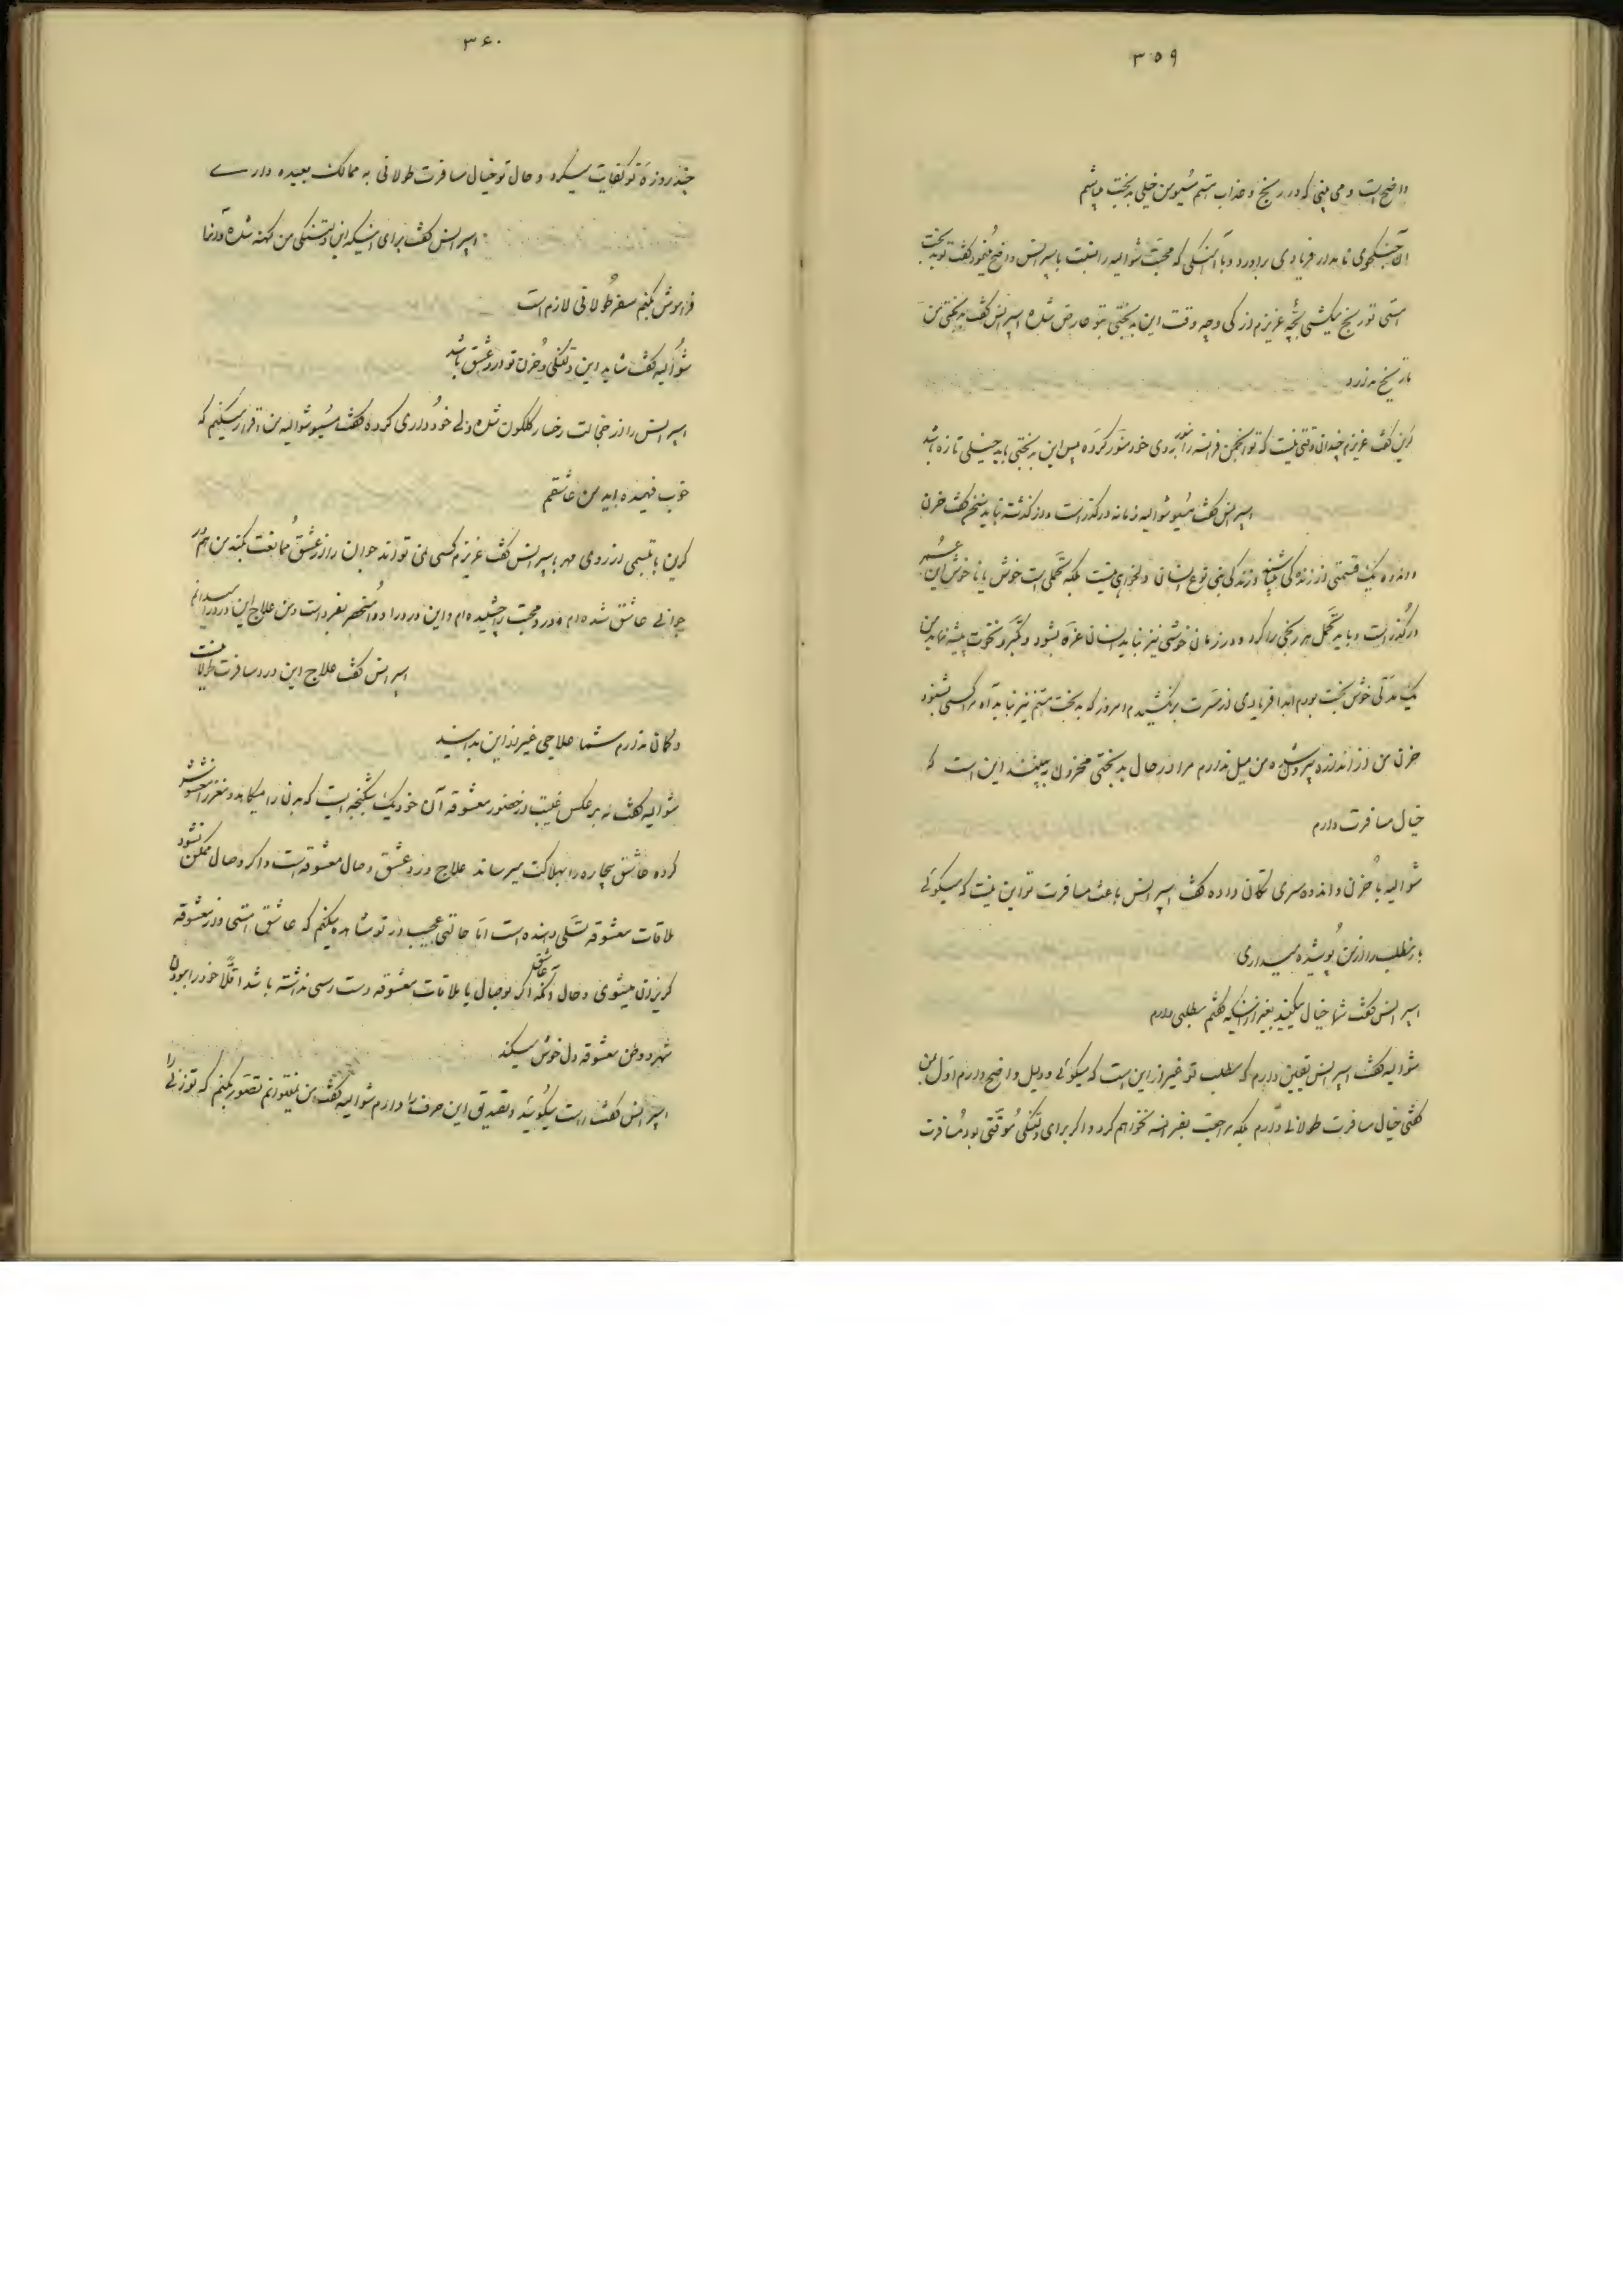 ۳۵۹
واضح است و می بینی که در رنج و عذاب هستم مسیو من خیلی بدبخت میباشم
آن جنگجوی نامدار فریادی برآورد و با آهنگی که محبت شوالیه را نسبت باسپرانس واضح مینمود گفت تو بدبخت
هستی تو رنج میکشی بچه عزیزم از کی و چه وقت این بدبختی بتو عارض شده اسپرانس گفت بدبختی من
تاریخ ندارد
کرین گفت عزیزم چندان وقتی نیست که تو انجمن فرانسه را بنور روی خود منور کرده پس این بدبختی باید خیلی تازه باشد
اسپرانس گفت مسیو شوالیه زمانه در گذر است و از گذشته نباید سخن گفت حزن
و اندوه یک قسمتی از زندگی میباشد و زندگی بنی نوع انسان دلخواهی نیست بلکه تحملی است خوش یا ناخوش این عمر
در گذر است و باید تحمل هر رنجی را کرد و در زمان خوشی نیز نباید انسان غره بشود و تکبر و نخوت پیشه نماید من
یک مدتی خوش بخت بودم ابدا فریادی از مسرت برنکشیدم امروز که بدبخت هستم نیز نباید آه مرا کسی بشنود
حزن من از اندازه بیرون شده من میل ندارم مرا در حال بدبختی محزون ببینند این است که
خیال مسافرت دارم
شوالیه با حزن و اندوه سری تکان داده گفت اسپرانس باعث مسافرت تو این نیست که میگوئی
مطلب را از من پوشیده میداری
اسپرانس گفت شما خیال میکنید بغیر از اینکه گفتم مطلبی دارم
شوالیه گفت اسپرانس یقین دارم که مطلب تو غیر از این است که میگوئی و دلیل واضح دارم اول بمن
گفتی خیال مسافرت طولانی دارم بلکه مراجعت بفرانسه نخواهم کرد و اگر برای دلتنگی موقتی بود مسافرت
۳۶۰
چند روزه تو کفایت میکرد و حال تو خیال مسافرت طولانی به ممالک بعیده داری
اسپرانس گفت برای اینکه این دلتنگی من کهنه شده و آنرا
فراموش بکنم سفر طولانی لازم است
شوالیه گفت شاید این دلتنگی و حزن تو درد عشق باشد
اسپرانس را از خجالت رخسار گلگون شده ولی خودداری کرده گفت مسیو شوالیه من اقرار میکنم که
خوب فهمیده اید من عاشقم
کرین با تبسمی از روی مهر باسپرانس گفت عزیزم کسی نمی تواند جوان را از عشق ممانعت بکند من هم در
جوانی عاشق شده ام و درد محبت را چشیده ام و این درد را دوا منحصر بفرد است و من علاج این درد را میدانم
اسپرانس گفت علاج این درد مسافرت طولانیست
و گمان ندارم شما علاجی غیر از این بدانید
شوالیه گفت نه برعکس غیبت از حضور معشوقه آن خود یک شکنجه ایست که بدن را میکاهد و مغز را مغشوش
کرده عاشق بیچاره را بهلاکت میرساند علاج درد عشق وصال معشوقه است و اگر وصال ممکن نشود
ملاقات معشوقه تسلی دهنده است اما حالتی عجیب در تو مشاهده میکنم که عاشق هستی و از معشوقه
گریزان میشوی و حال آنکه اگر عاشق بوصال یا ملاقات معشوقه دست رسی نداشته باشد اقلا خود را ببودن
شهر و وطن معشوقه دل خوش میکند
اسپرانس گفت راست میگوئید و تصدیق این حرف را دارم شوالیه گفت من نمیتوانم تصور بکنم که تو زنی را